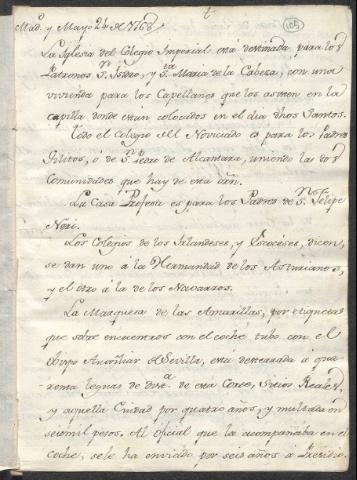 Mad. y Mayo 24 de 1768.
105
La Iglesia del Colegio Imperial está destinada para los
Patronos Sn. Isidro, y Sta. Maria de la Cabeza, con una
vivienda para los Capellanes que los asisten en la
capilla donde están colocados en el dia dhos Santos.
Todo el Colegio del Noviciado es para los Padres
Gilitos, ó de Sn. Pedro de Alcantara, uniendo las dos
Comunidades que hay de esta orn.
La Casa Profesa es para los Padres de Sn. Felipe
Neri.
Los Colegios de los Irlandeses, y Escoceses, dicen,
se dan uno á la Hermandad de los Asturianos,
y el otro á la de los Navarros.
La Marquesa de las Amarillas, por etiquetas
que sobre encuentros con el coche tubo con el
Obispo Auxiliar de Sevilla, está desterrada á qua-
renta leguas de dista. de esta Corte, Sitios Reales,
y aquella Ciudad por quatro años, y multada en
seis mil pesos. Al oficial que la acompañaba en el
coche, se le ha enviado por seis años á Presidio.